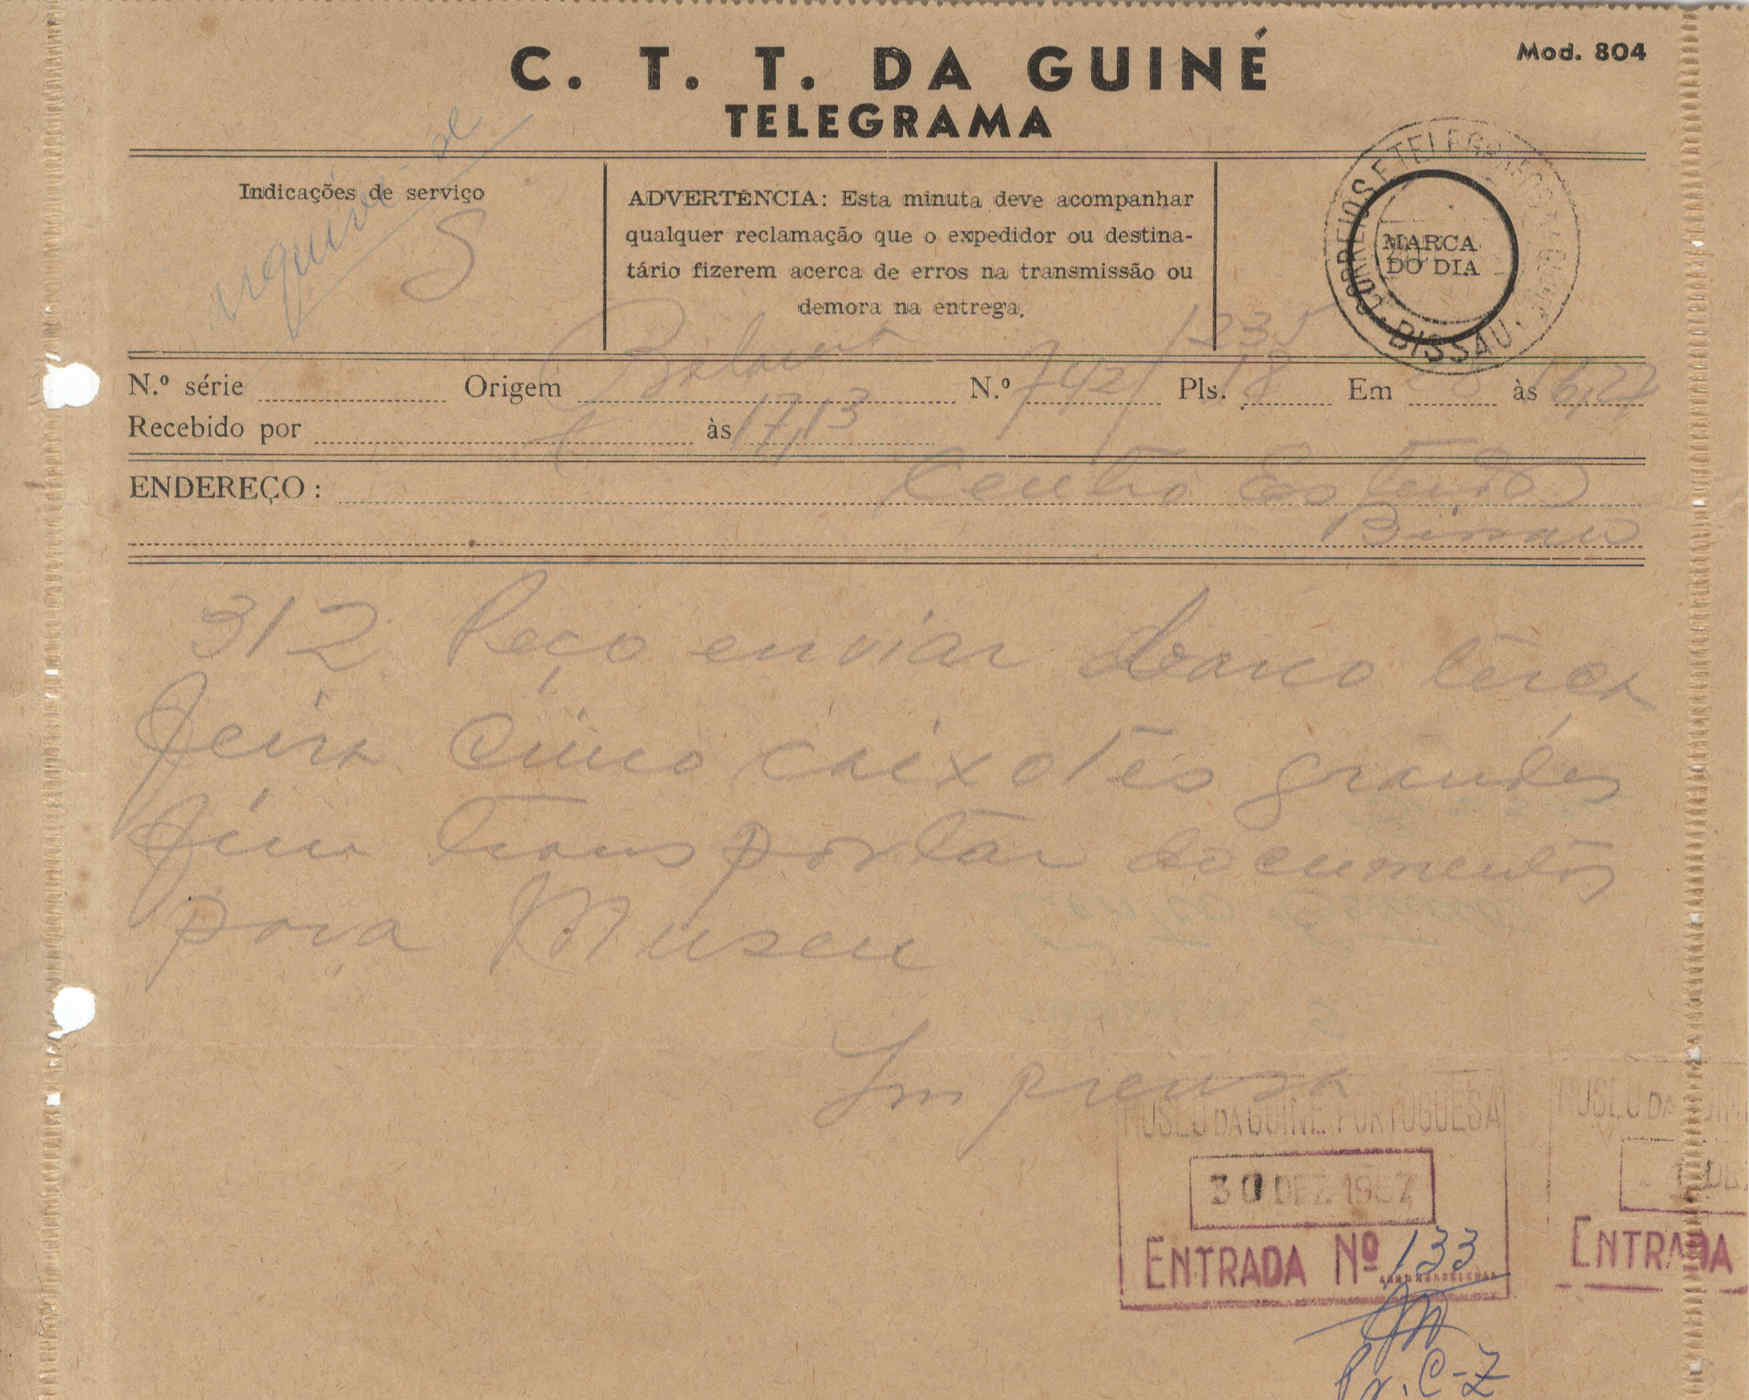 C. T. T. DA GUINÉ
Mod. 804
TELEGRAMA
arquive-se
Indicações de serviço
S
ADVERTÊNCIA: Esta minuta deve acompanhar
qualquer reclamação que o expedidor ou destina-
tário fizerem acerca de erros na transmissão ou
demora na entrega.
CORREIOS E TELEGRAFOS
BISSAU
MARCA
DO DIA
1235
N.º série Origem Bolama N.º 742/ Pls. 18 Em 28 às 16,22
Recebido por às 17,13
ENDEREÇO: Centro Estudos
Bissau
312 Peço enviar barco terça
feira cinco caixotes grandes
fim transportar documentos
para Museu
Imprensa
MUSEU DA GUINÉ PORTUGUESA
30 DEZ. 1957
ENTRADA Nº 133
MUSEU DA GUINÉ
DEZ
ENTRADA
Pr. C-Z